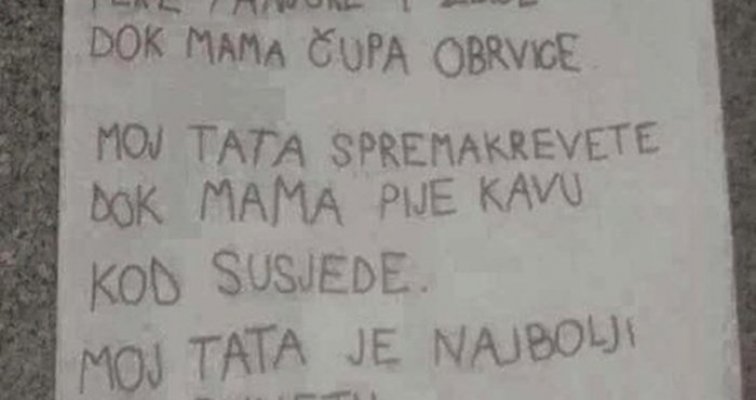 DOK MAMA ČUPA OBRVICE
MOJ TATA SPREMAKREVETE
DOK MAMA PIJE KAVU
KOD SUSJEDE.
MOJ TATA JE NAJBOLJI